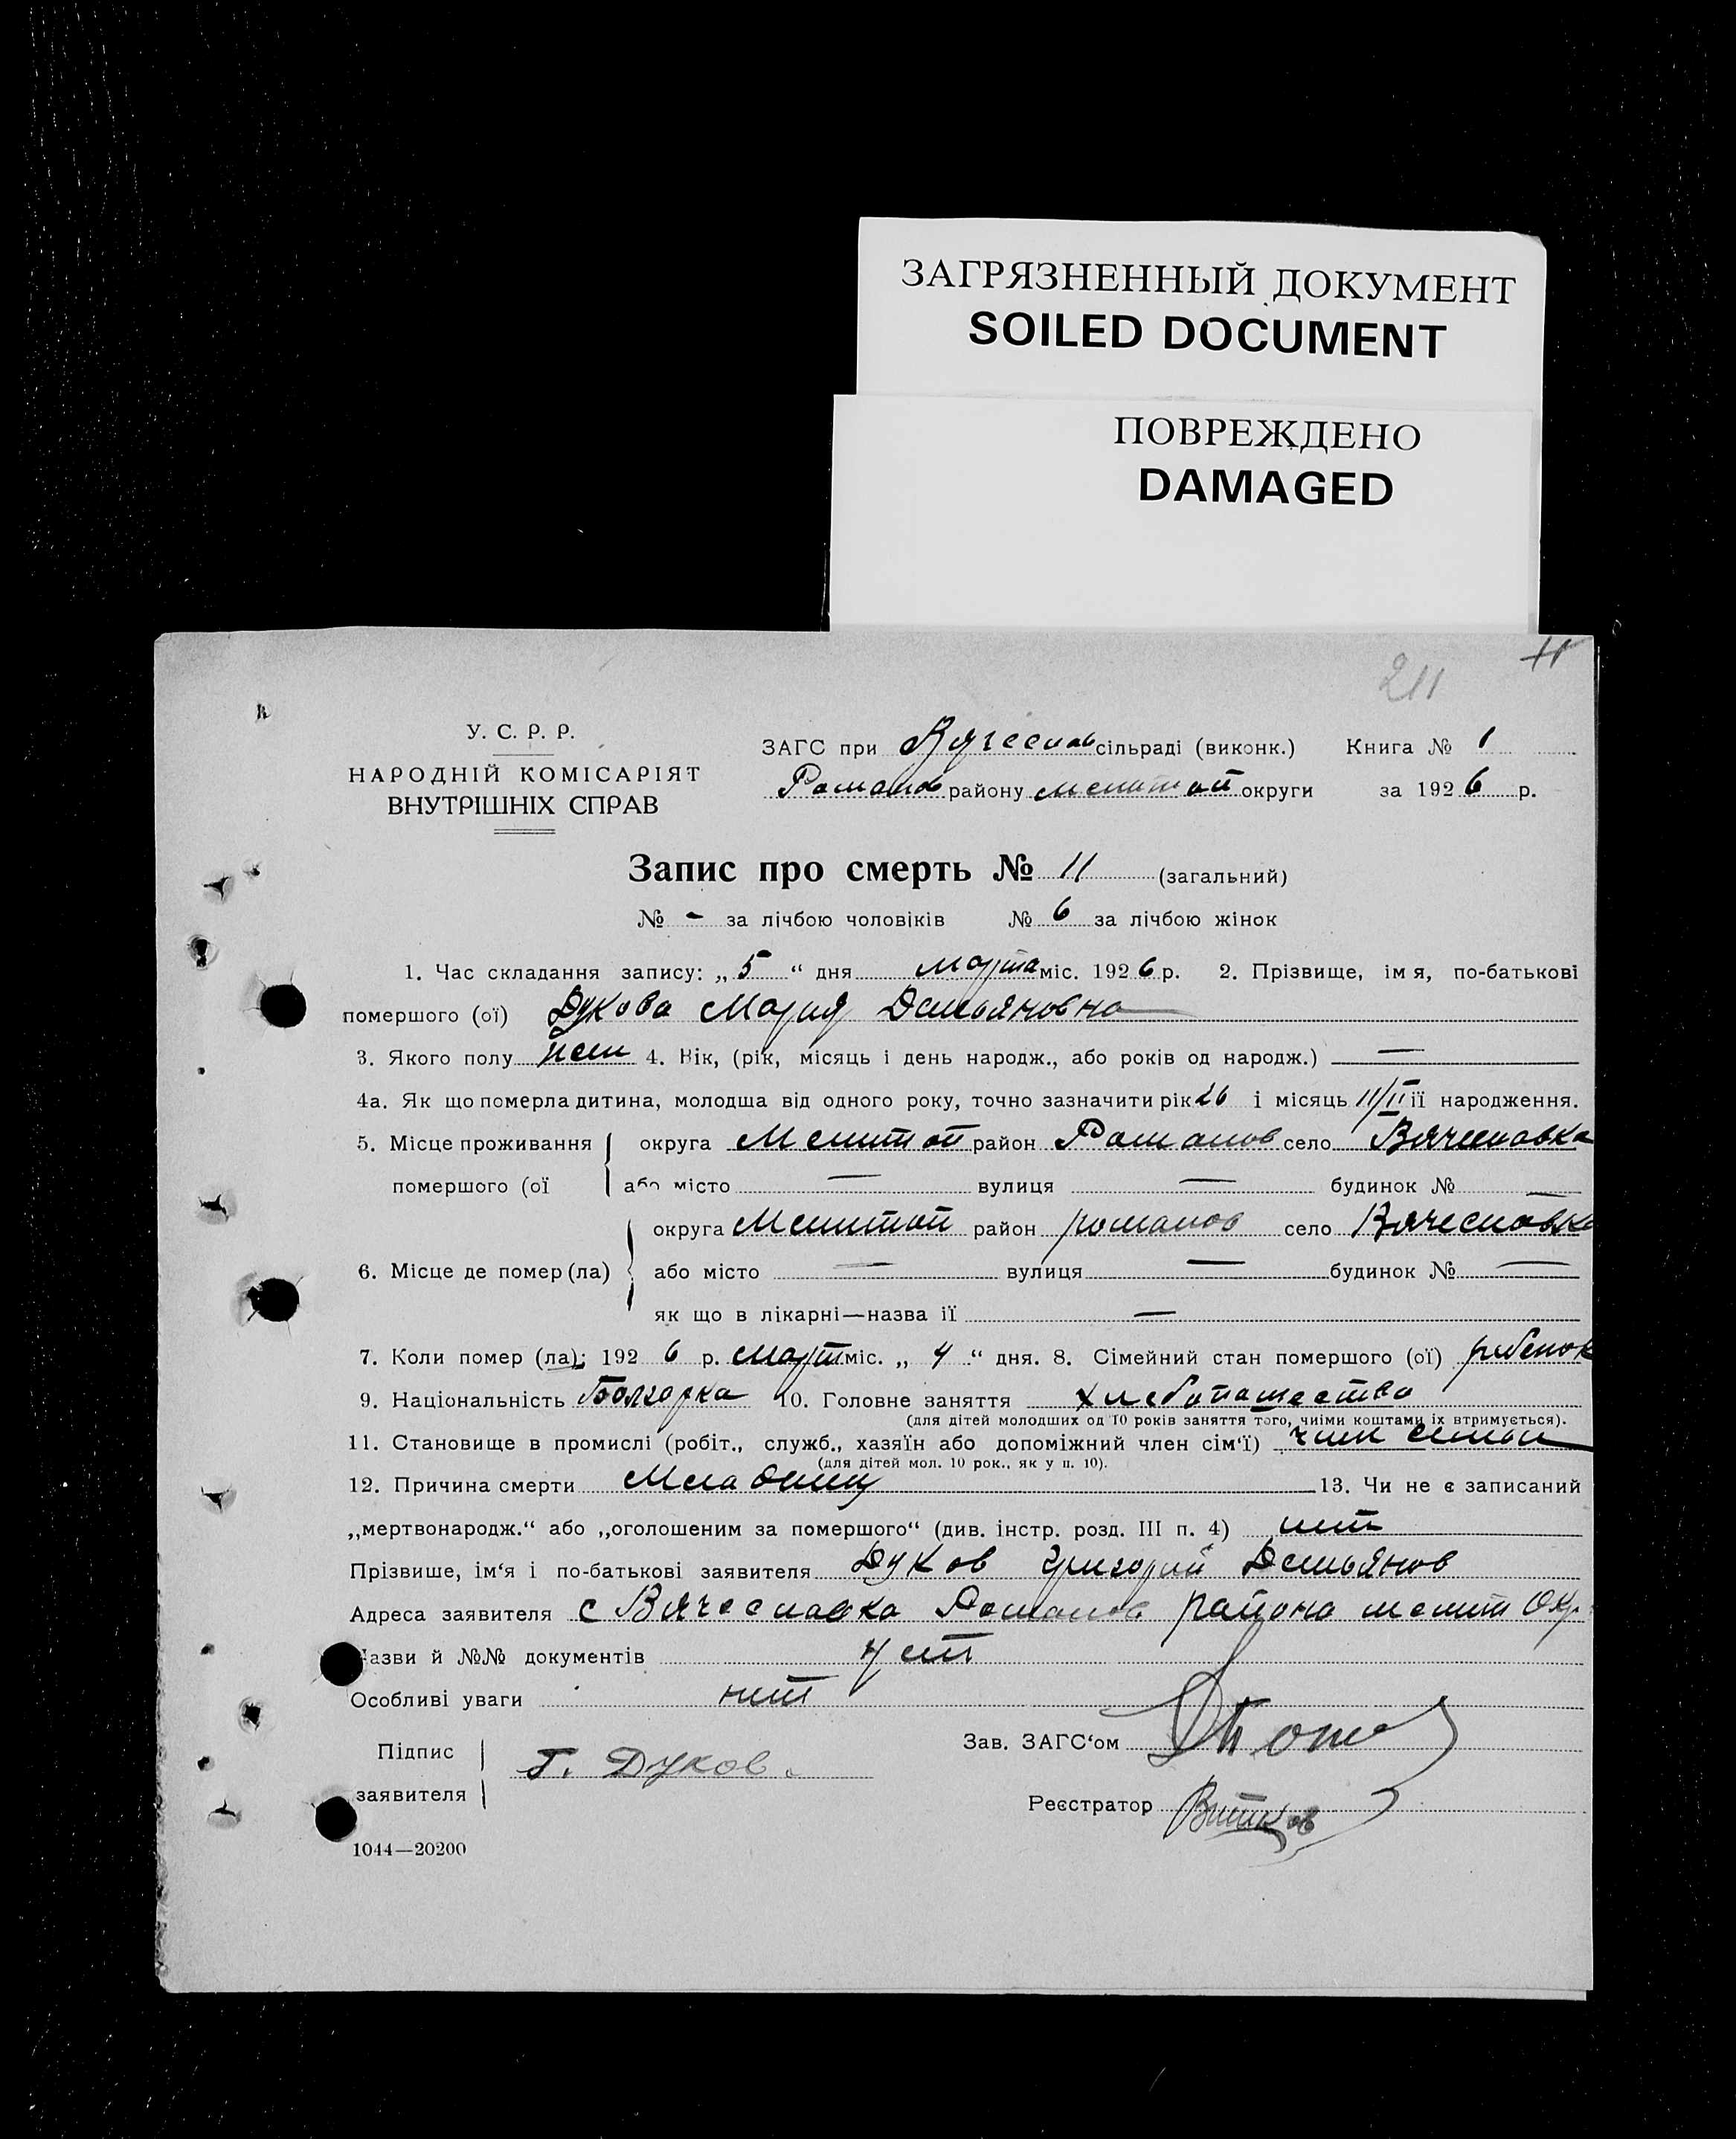 ЗАГРЯЗНЕННЫЙ ДОКУМЕНТ
SOILED DOCUMENT
ПОВРЕЖДЕНО
DAMAGED
211
У. С. Р. Р.
НАРОДНІЙ КОМІСАРІЯТ
ВНУТРІШНІХ СПРАВ
ЗАГС при Вячеслав сільраді (виконк.) Книга № 1
Романов району мелитоп округи за 1926 р.
Запис про смерть № 11 (загальний)
№ - за лічбою чоловіків № 6 за лічбою жінок
1. Час складання запису: „5“ дня марта міс. 1926 р. 2. Прізвище, ім я, по-батькові
помершого (ої) Дукова Мария Демьяновна
3. Якого полу жен 4. Вік, (рік, місяць і день народж., або років од народж.) —
4а. Як що померла дитина, молодша від одного року, точно зазначити рік 26 і місяць 11/II її народження.
5. Місце проживання округа Мелитоп район Романов село Вячеславка
помершого (ої або місто — вулиця — будинок № —
округа Мелитоп район романов село Вячеславка
6. Місце де помер (ла) або місто — вулиця — будинок № —
як що в лікарні—назва її —
7. Коли помер (ла): 1926 р. март міс. „4“ дня. 8. Сімейний стан помершого (ої) ребенок
9. Національність Болгарка 10. Головне заняття хлебопашество
(для дітей молодших од 10 років заняття того, чиїми коштами їх втримується).
11. Становище в промислі (робіт., служб., хазяїн або допоміжний член сім'ї) член семьи
(для дітей мол. 10 рок., як у п. 10).
12. Причина смерти 13. Чи не є записаний
„мертвонародж.“ або „оголошеним за помершого“ (див. інстр. розд. III п. 4) нет
Прізвише, ім'я і по-батькові заявителя Дуков Григорий Демьянов
Адреса заявителя с Вячеславка Романов района мелит Окр
Назви й №№ документів нет
Особливі уваги нет
Підпис
заявителя Г. Дуков.
Зав. ЗАГС'ом
Реєстратор
1044—20200